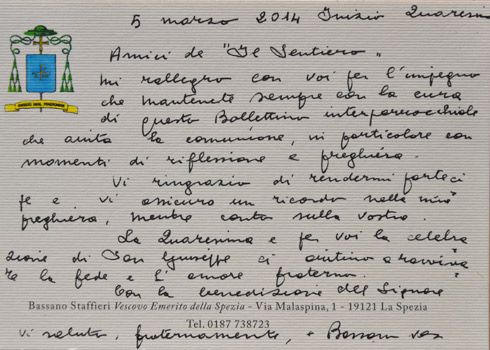 5 marzo 2014 Inizio Quaresima
Amici de "Il Sentiero"
mi rallegro con voi per l'impegno
che mantenete sempre con la cura
di questo Bollettino interparrocchiale
che aiuta la comunione, in particolare con
momenti di riflessione e preghiera.
Vi ringrazio di rendermi parteci
pe e vi assicuro un ricordo nella mia
preghiera, mentre conto sulla vostra.
La Quaresima e per voi la celebra
zione di San Giuseppe ci aiutino a ravviva
re la fede e l'amore fraterno.
Con la benedizione del Signore
Bassano Staffieri Vescovo Emerito della Spezia - Via Malaspina, 1 - 19121 La Spezia
Tel. 0187 738723
vi saluto, fraternamente, + Bassano